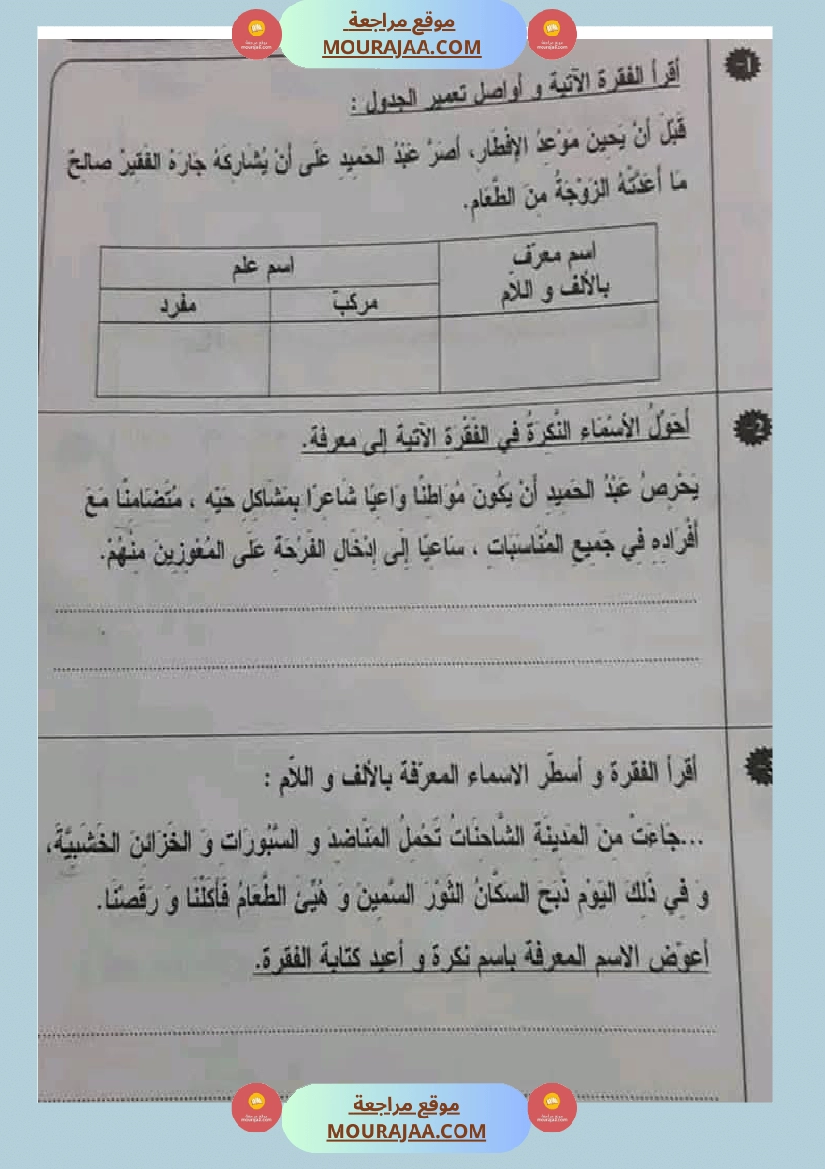 موقع مراجعة
MOURAJAA.COM
1-
أقرأ الفقرة الآتية و أواصل تعمير الجدول :
قَبْلَ أَنْ يَحِينَ مَوْعِدُ الإِفْطَارِ، أَصَرَّ عَبْدُ الحَمِيدِ عَلَى أَنْ يُشَارِكَهُ جَارَهُ الفَقِيرُ صالحٌ
مَا أَعَدَّتْهُ الزَوْجَةُ مِنَ الطَّعَام.
اسم معرّف بالألف و اللاّم
اسم علم
مركبّ
مفرد
2-
أُحَوِّلُ الأَسْمَاء النَّكِرَةُ في الفَقْرَةِ الآتية إلى معرفة.
يَحْرِصُ عَبْدُ الحَمِيدِ أَنْ يَكُونَ مُوَاطِنًا وَاعِيًا شَاعِرًا بِمَشَاكِلِ حَيِّهِ ، مُتَضَامِنًا مَعَ
أَفْرَادِهِ فِي جَمِيعِ المُنَاسَبَاتِ ، سَاعِيًا إِلَى إِدْخَالِ الفَرْحَةِ عَلَى المُعْوِزِينَ مِنْهُمْ.
أقرأ الفقرة و أسطّر الاسماء المعرّفة بالألف و اللاّم :
...جَاءَتْ مِنَ المَدِينَةِ الشَّاحِنَاتُ تَحْمِلُ المَنَاضِدَ و السَّبُورَاتِ وَ الخَزَائِنَ الخَشَبِيَّةَ،
وَ فِي ذَلِكَ اليَوْم ذَبَحَ السكَّانُ الثَوْرَ السَّمِينَ وَ هُيِّئَ الطَّعَامُ فَأَكَلْنَا وَ رَقَصْنَا.
أعوّض الاسم المعرفة باسم نكرة و أعيد كتابة الفقرة.
موقع مراجعة
MOURAJAA.COM